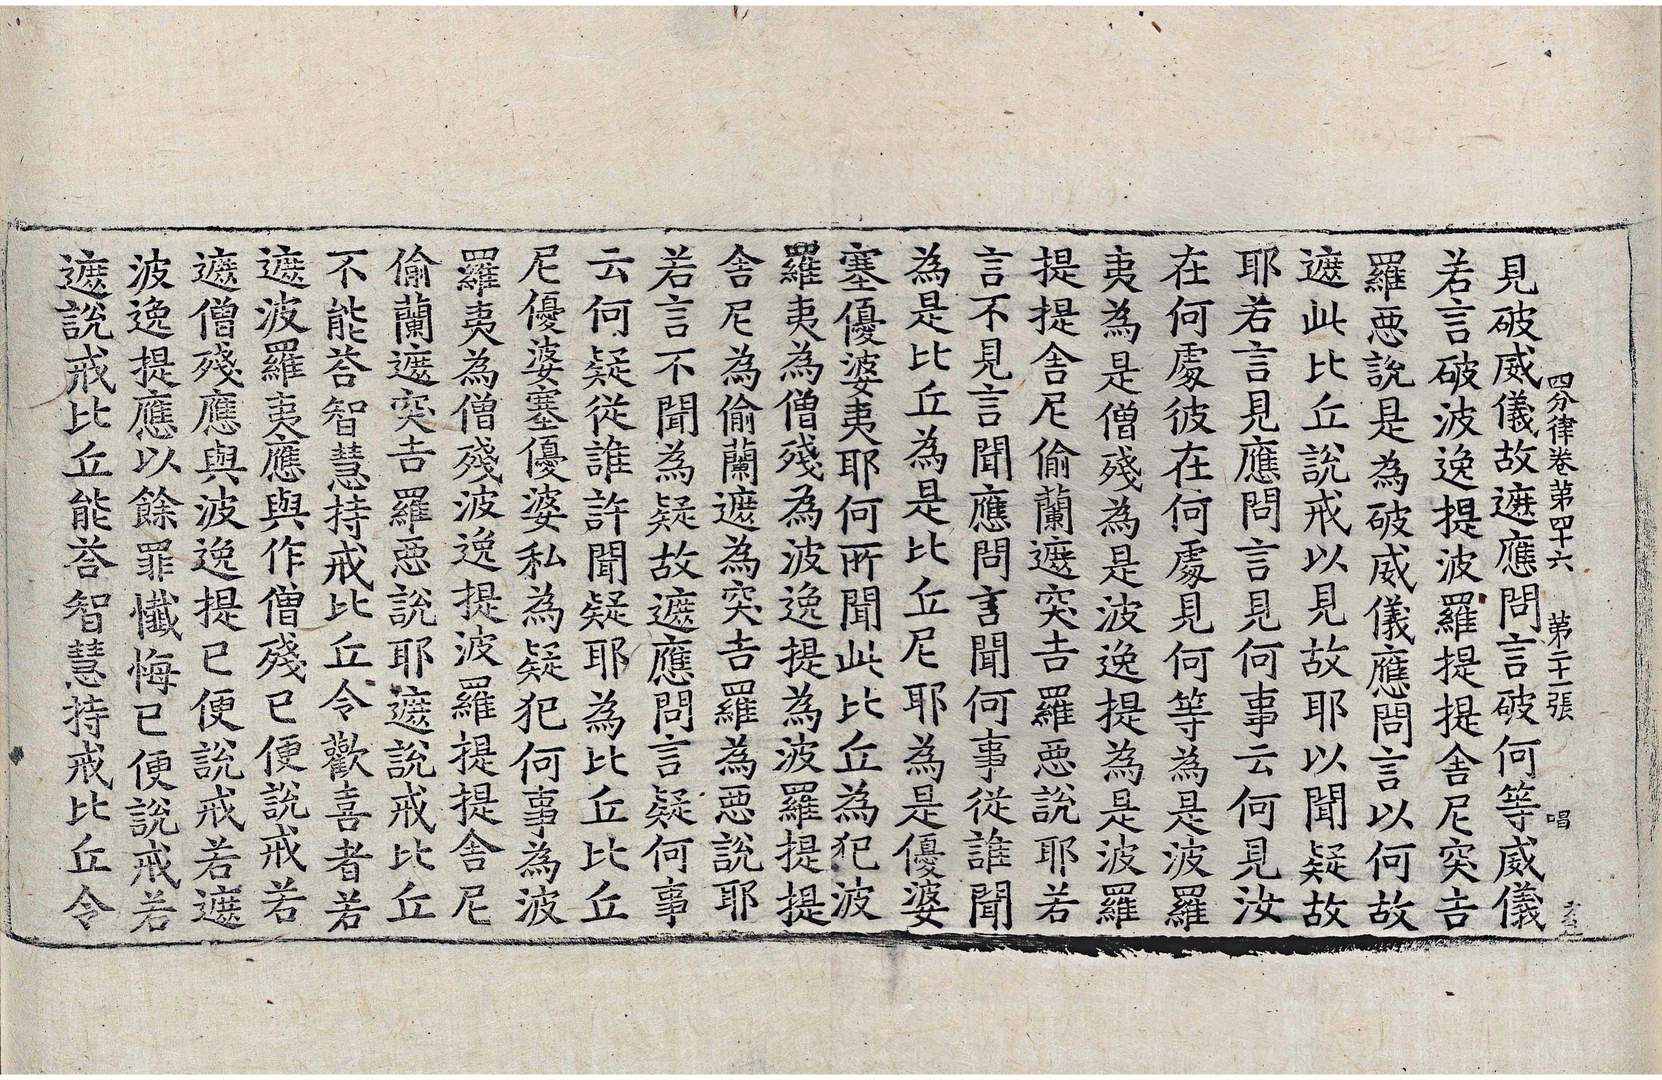 四分律卷第四十六　第二十一張　唱
見破威儀故遮應問言破何等威儀
若言破波逸提波羅提提舍尼突吉
羅惡說是為破威儀應問言以何故
遮此比丘說戒以見故耶以聞疑故
耶若言見應問言見何事云何見汝
在何處彼在何處見何等為是波羅
夷為是僧殘為是波逸提為是波羅
提提舍尼偷蘭遮突吉羅惡說耶若
言不見言聞應問言聞何事從誰聞
為是比丘為是比丘尼耶為是優婆
塞優婆夷耶何所聞此比丘為犯波
羅夷為僧殘為波逸提為波羅提提
舍尼為偷蘭遮為突吉羅為惡說耶
若言不聞為疑故遮應問言疑何事
云何疑從誰許聞疑耶為比丘比丘
尼優婆塞優婆私為疑犯何事為波
羅夷為僧殘波逸提波羅提提舍尼
偷蘭遮突吉羅惡說耶遮說戒比丘
不能荅智慧持戒比丘令歡喜者若
遮波羅夷應與作僧殘已便說戒若
遮僧殘應與波逸提已便說戒若遮
波逸提應以餘罪懺悔已便說戒若
遮說戒比丘能荅智慧持戒比丘令